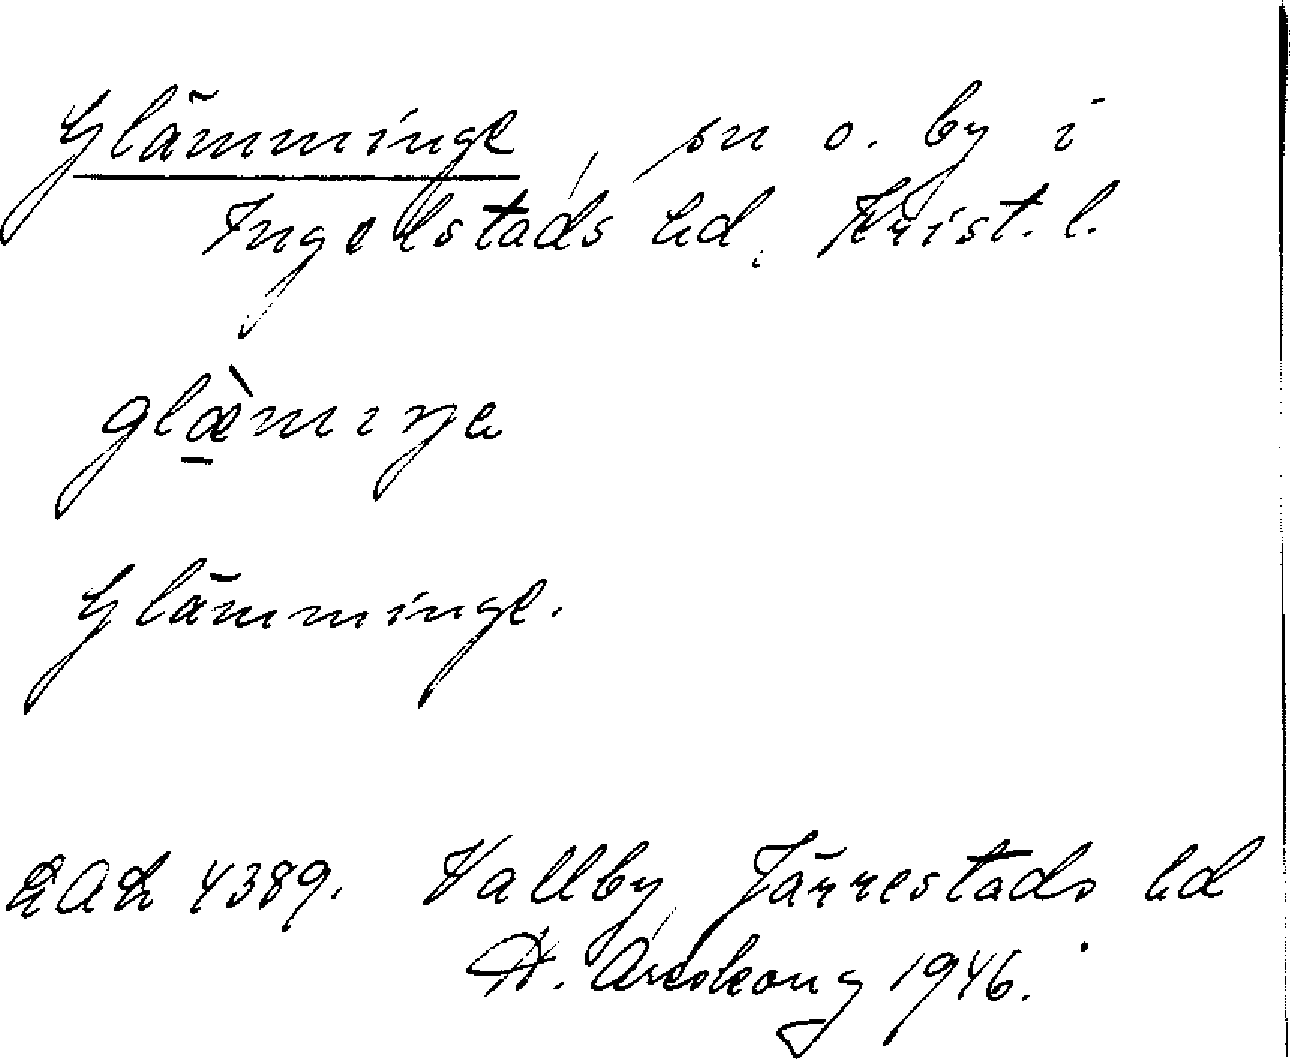 Glämminge, sn o. by i
Ingelstads hd, Krist. l.
glæ̠̀mıŋa
Glämminge.
LAL 4389. Vallby, Järrestads hd
H. Areskoug 1946.